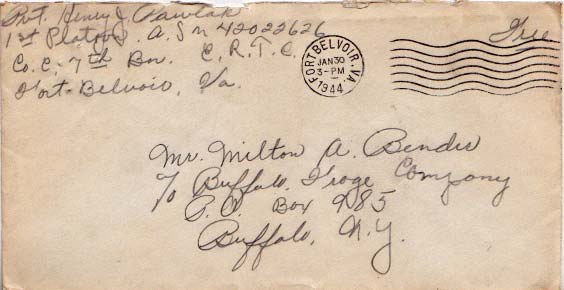 Pvt. Henry J. Pawlak
1st Platoon A.S.N 42022626
Co. C. 7th Bn. C.R.T.C.
Fort Belvoir, Va.
FORT BELVOIR, VA.
JAN 30
3-PM
1944
Free
Mr. Milton A. Bender
c/o Buffalo Company
P.O. Box 985
Buffalo, N.Y.